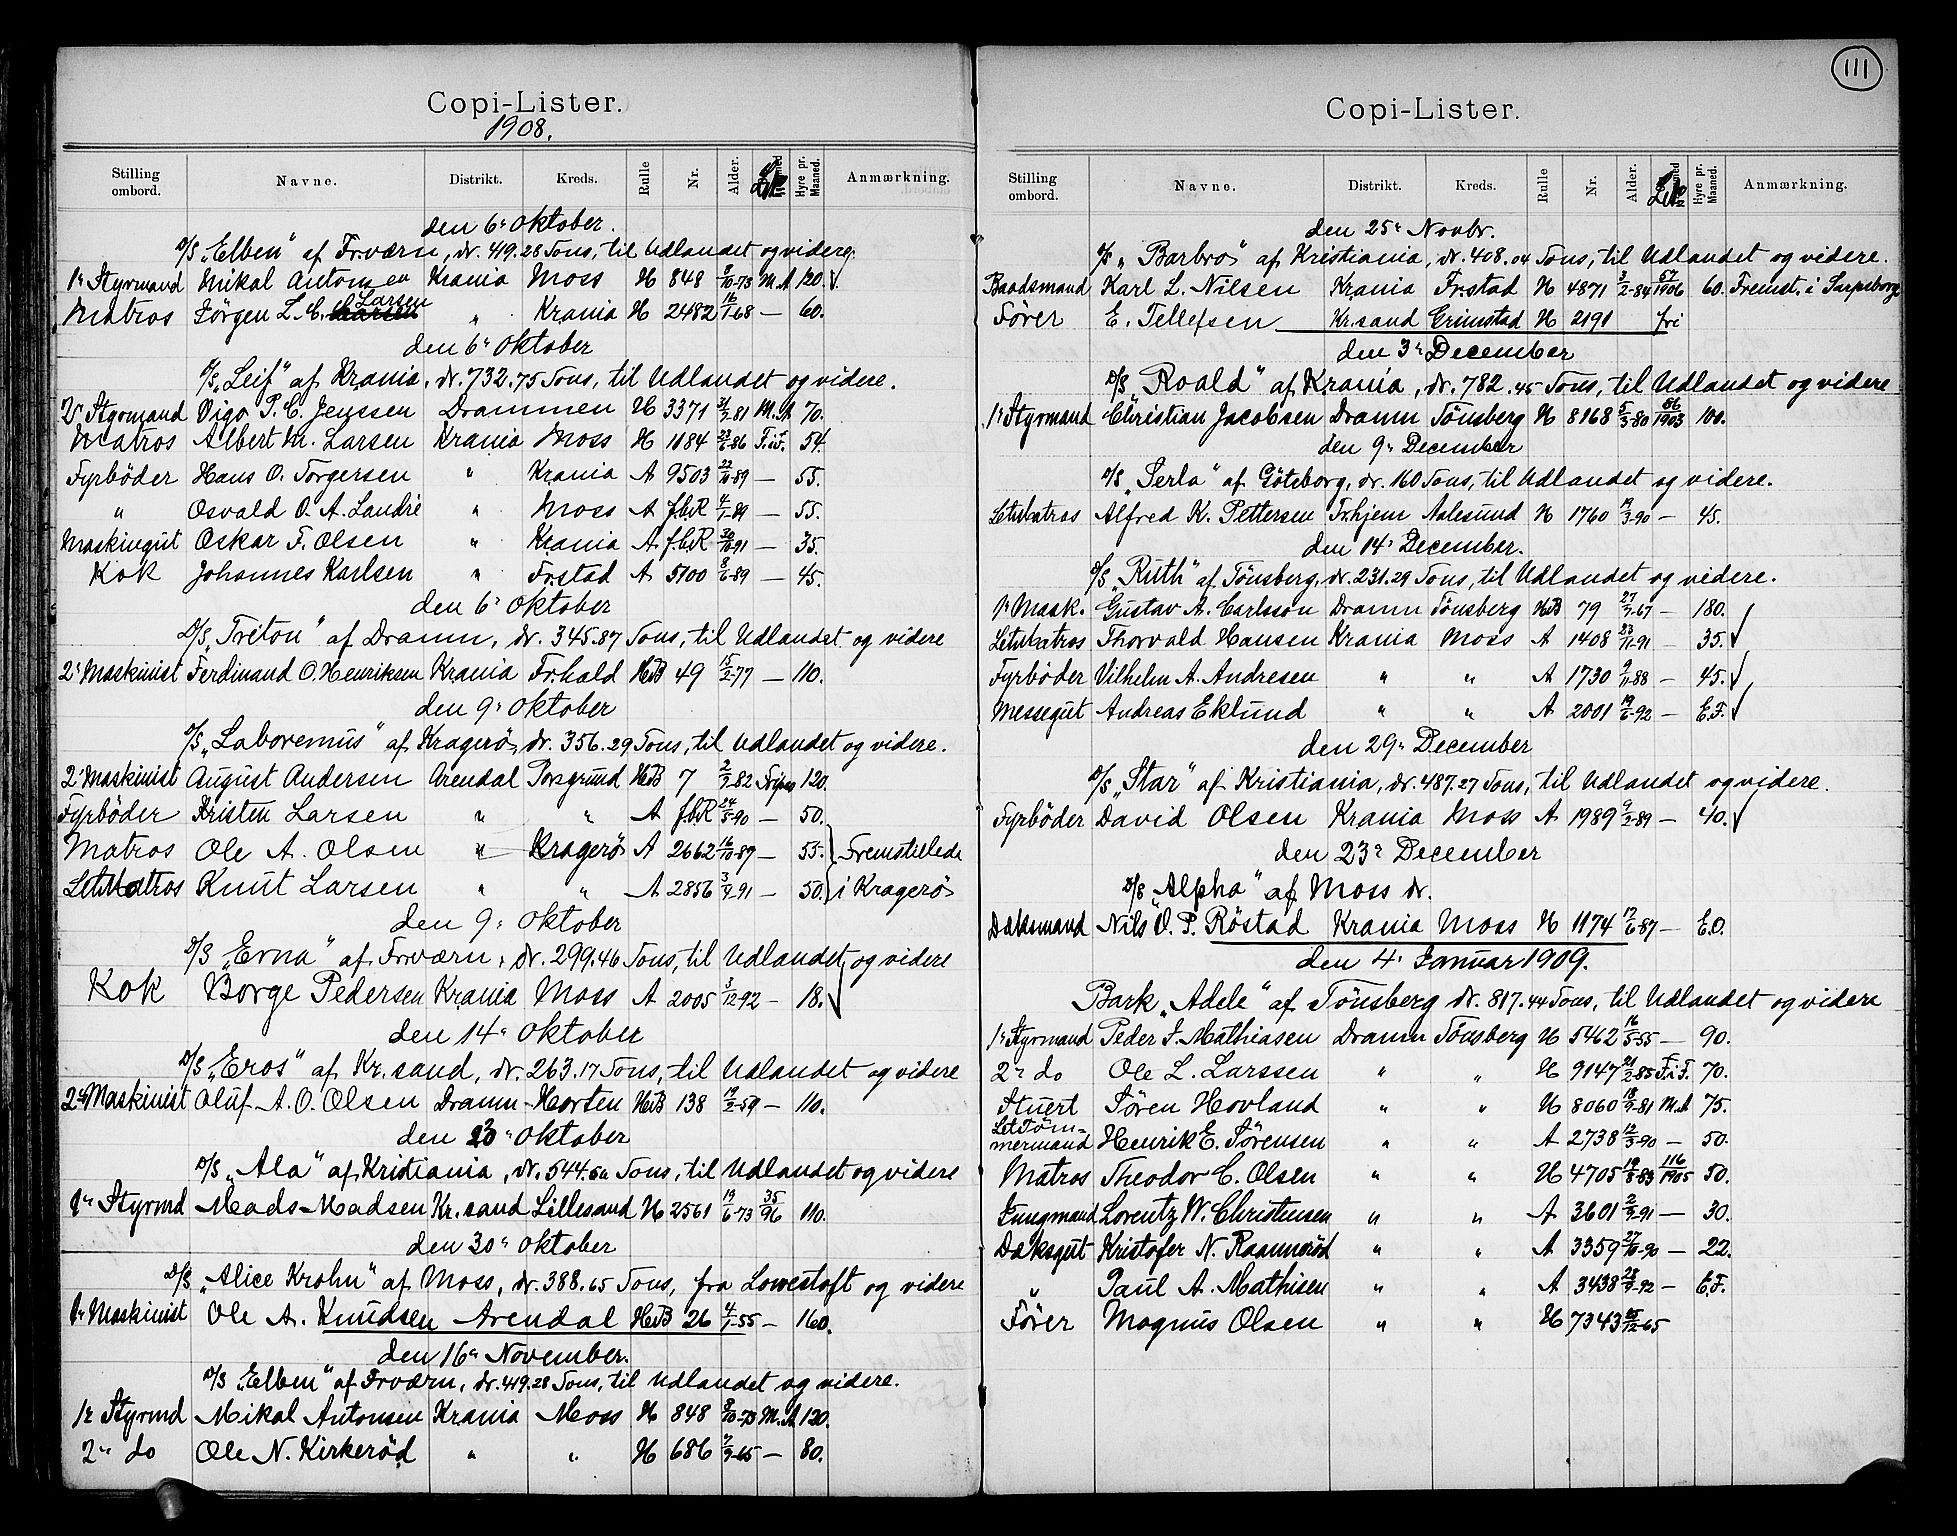 Copi-Lister.
1908.
Stilling ombord. Navne. Distrikt. Kreds. Rulle Nr. Alder. Hyre pr. Maaned. Anmærkning.
den 6' Oktober.
D/S „Elben" af Fr.værn, dr. 419.28 Tons, til Udlandet og videre
1' Styrmand Mikal Antonsen Krania Moss H 848 9/10-73 M.A 120.
Matros Jörgen L. C. Larsen " Krania H 2482 16/1-68 — 60.
den 6' Oktober
D/S „Leif" af Krania, dr. 732.75 Tons, til Udlandet og videre.
2' Styrmand Vigo P. C. Jenssen Drammen H 3371 31/7-81 M.A 70.
Matros Albert M. Larsen Krania Moss H 1184 22/6-86 F.i.F. 54.
Fyrböder Hans O. Torgersen " Krania A 9503 22/10-89 — 55.
" Osvald O. A. Landré " Moss A f.b.R 4/1-89 — 55.
Maskingut Oskar F. Olsen " Krania A f.b.R 30/10-91 — 35.
Kok Johannes Karlsen " Fr.stad A 5100 8/6-89 — 45.
den 6' Oktober
D/S „Triton" af Dramm, dr. 345.87 Tons, til Udlandet og videre
2' Maskinist Ferdinand O. Henriksen Krania Fr.hald HB 49 15/2-77 — 110.
den 9' Oktober
D/S „Laboremus" af Kragerö, dr. 356.29 Tons, til Udlandet og videre.
2' Maskinist August Andersen Arendal Porsgrund HB 7 2/9-82 120.
Fyrböder Kristen Larsen " " A f.b.R 24/5-90 — 50.
Matros Ole A. Olsen " Kragerö A 2662 16/10-87 — 55. Fremstillede
LetMatros Knut Larsen " " A 2856 3/9-91 — 50. i Kragerö
den 9' Oktober
D/S „Erna" af Fr.værn, dr. 299.46 Tons, til Udlandet og videre
Kok Borge Pedersen Krania Moss A 2005 3/12-92 — 18.
den 14' Oktober
D/S „Eros" af Kr.sand, dr. 263.17 Tons, til Udlandet og videre
2' Maskinist Oluf A. O. Olsen Dramm Horten HB 138 19/2-59 — 110.
den 20' Oktober
D/S „Ala" af Kristiania, dr. 544. Tons, til Udlandet og videre
1' Styrmd Mads Madsen Kr.sand Lillesand H 2561 19/6-73 35/96 110.
den 30' Oktober
D/S „Alice Krohn" af Moss, dr. 388.65 Tons, fra Lowestoft og videre
1' Maskinist Ole A. Knudsen Arendal HB 26 4/1-55 — 160.
den 16' November.
D/S „Elben" af Fr.værn, dr. 419.28 Tons, til Udlandet og videre.
1' Styrmd Mikal Antonsen Krania Moss H 848 9/10-73 M.A 120.
2' do Ole N. Kirkeröd " " H 686 7/9-65 — 80.
111
Copi-Lister.
Stilling ombord. Navne. Distrikt. Kreds. Rulle Nr. Alder. Hyre pr. Maaned. Anmærkning.
den 25' Novbr.
D/S „Barbro" af Kristiania, dr. 408.04 Tons, til Udlandet og videre.
Baadsmand Karl L. Nilsen Krania Fr.stad H 4871 3/2-84 57/1906 60. Fremst. i Sarpsborg
Förer E. Tellefsen Kr.sand Grimstad H 2191 fri
den 3' December
D/S „Roald" af Krania, dr. 782.45 Tons, til Udlandet og videre
1' Styrmand Christian Jacobsen Dramm Tönsberg H 8168 5/3-80 86/1903 100.
den 9' December
D/S „Serla" af Göteborg, dr. 160 Tons, til Udlandet og videre.
LetMatros Alfred K. Pettersen Tr.hjem Aalesund H 1760 19/3-90 — 45.
den 14' December.
D/S „Ruth" af Tönsberg, dr. 231.29 Tons, til Udlandet og videre.
1' Mask. Gustav A. Carlsson Dramm Tönsberg HB 79 27/7-67 — 180.
LetMatros Thorvald Hansen Krania Moss A 1408 23/11-91 — 35.
Fyrböder Vilhelm A. Andresen " " A 1730 9/11-88 — 45.
Messegut Andreas Eklund " " A 2001 19/6-92 — E.F.
den 29' December
D/S „Star" af Kristiania, dr. 487.27 Tons, til Udlandet og videre.
Fyrböder David Olsen Krania Moss A 1989 9/2-89 — 40.
den 23' December
D/S „Alpha" af Moss dr.
Dæksmand Nils O. P. Röstad Krania Moss H 1174 17/6-87 — E.O.
den 4' Januar 1909.
Bark „Adele" af Tönsberg dr. 817.44 Tons, til Udlandet og videre
1' Styrmand Peder J. Mathiasen Dramm Tönsberg H 5462 16/5-55 — 90.
2' do Ole L. Larssen " " H 9147 21/2-85 F.i.F. 70.
Stuert Sören Hovland " " H 8060 18/9-81 M.A 75.
Let Töm-
mermand Henrik E. Sörensen " " A 2738 12/3-90 — 50.
Matros Theodor C. Olsen " " H 4705 19/8-83 116/1905 50.
Jungmand Lorentz W. Christensen " " A 3601 2/9-91 — 30.
Dæksgut Kristofer N. Raanneröd " " A 3359 27/10-90 — 22.
" Paul A. Mathisen " " A 3438 28/9-92 — E.F.
Förer Magnus Olsen " " H 7343 25/12-65